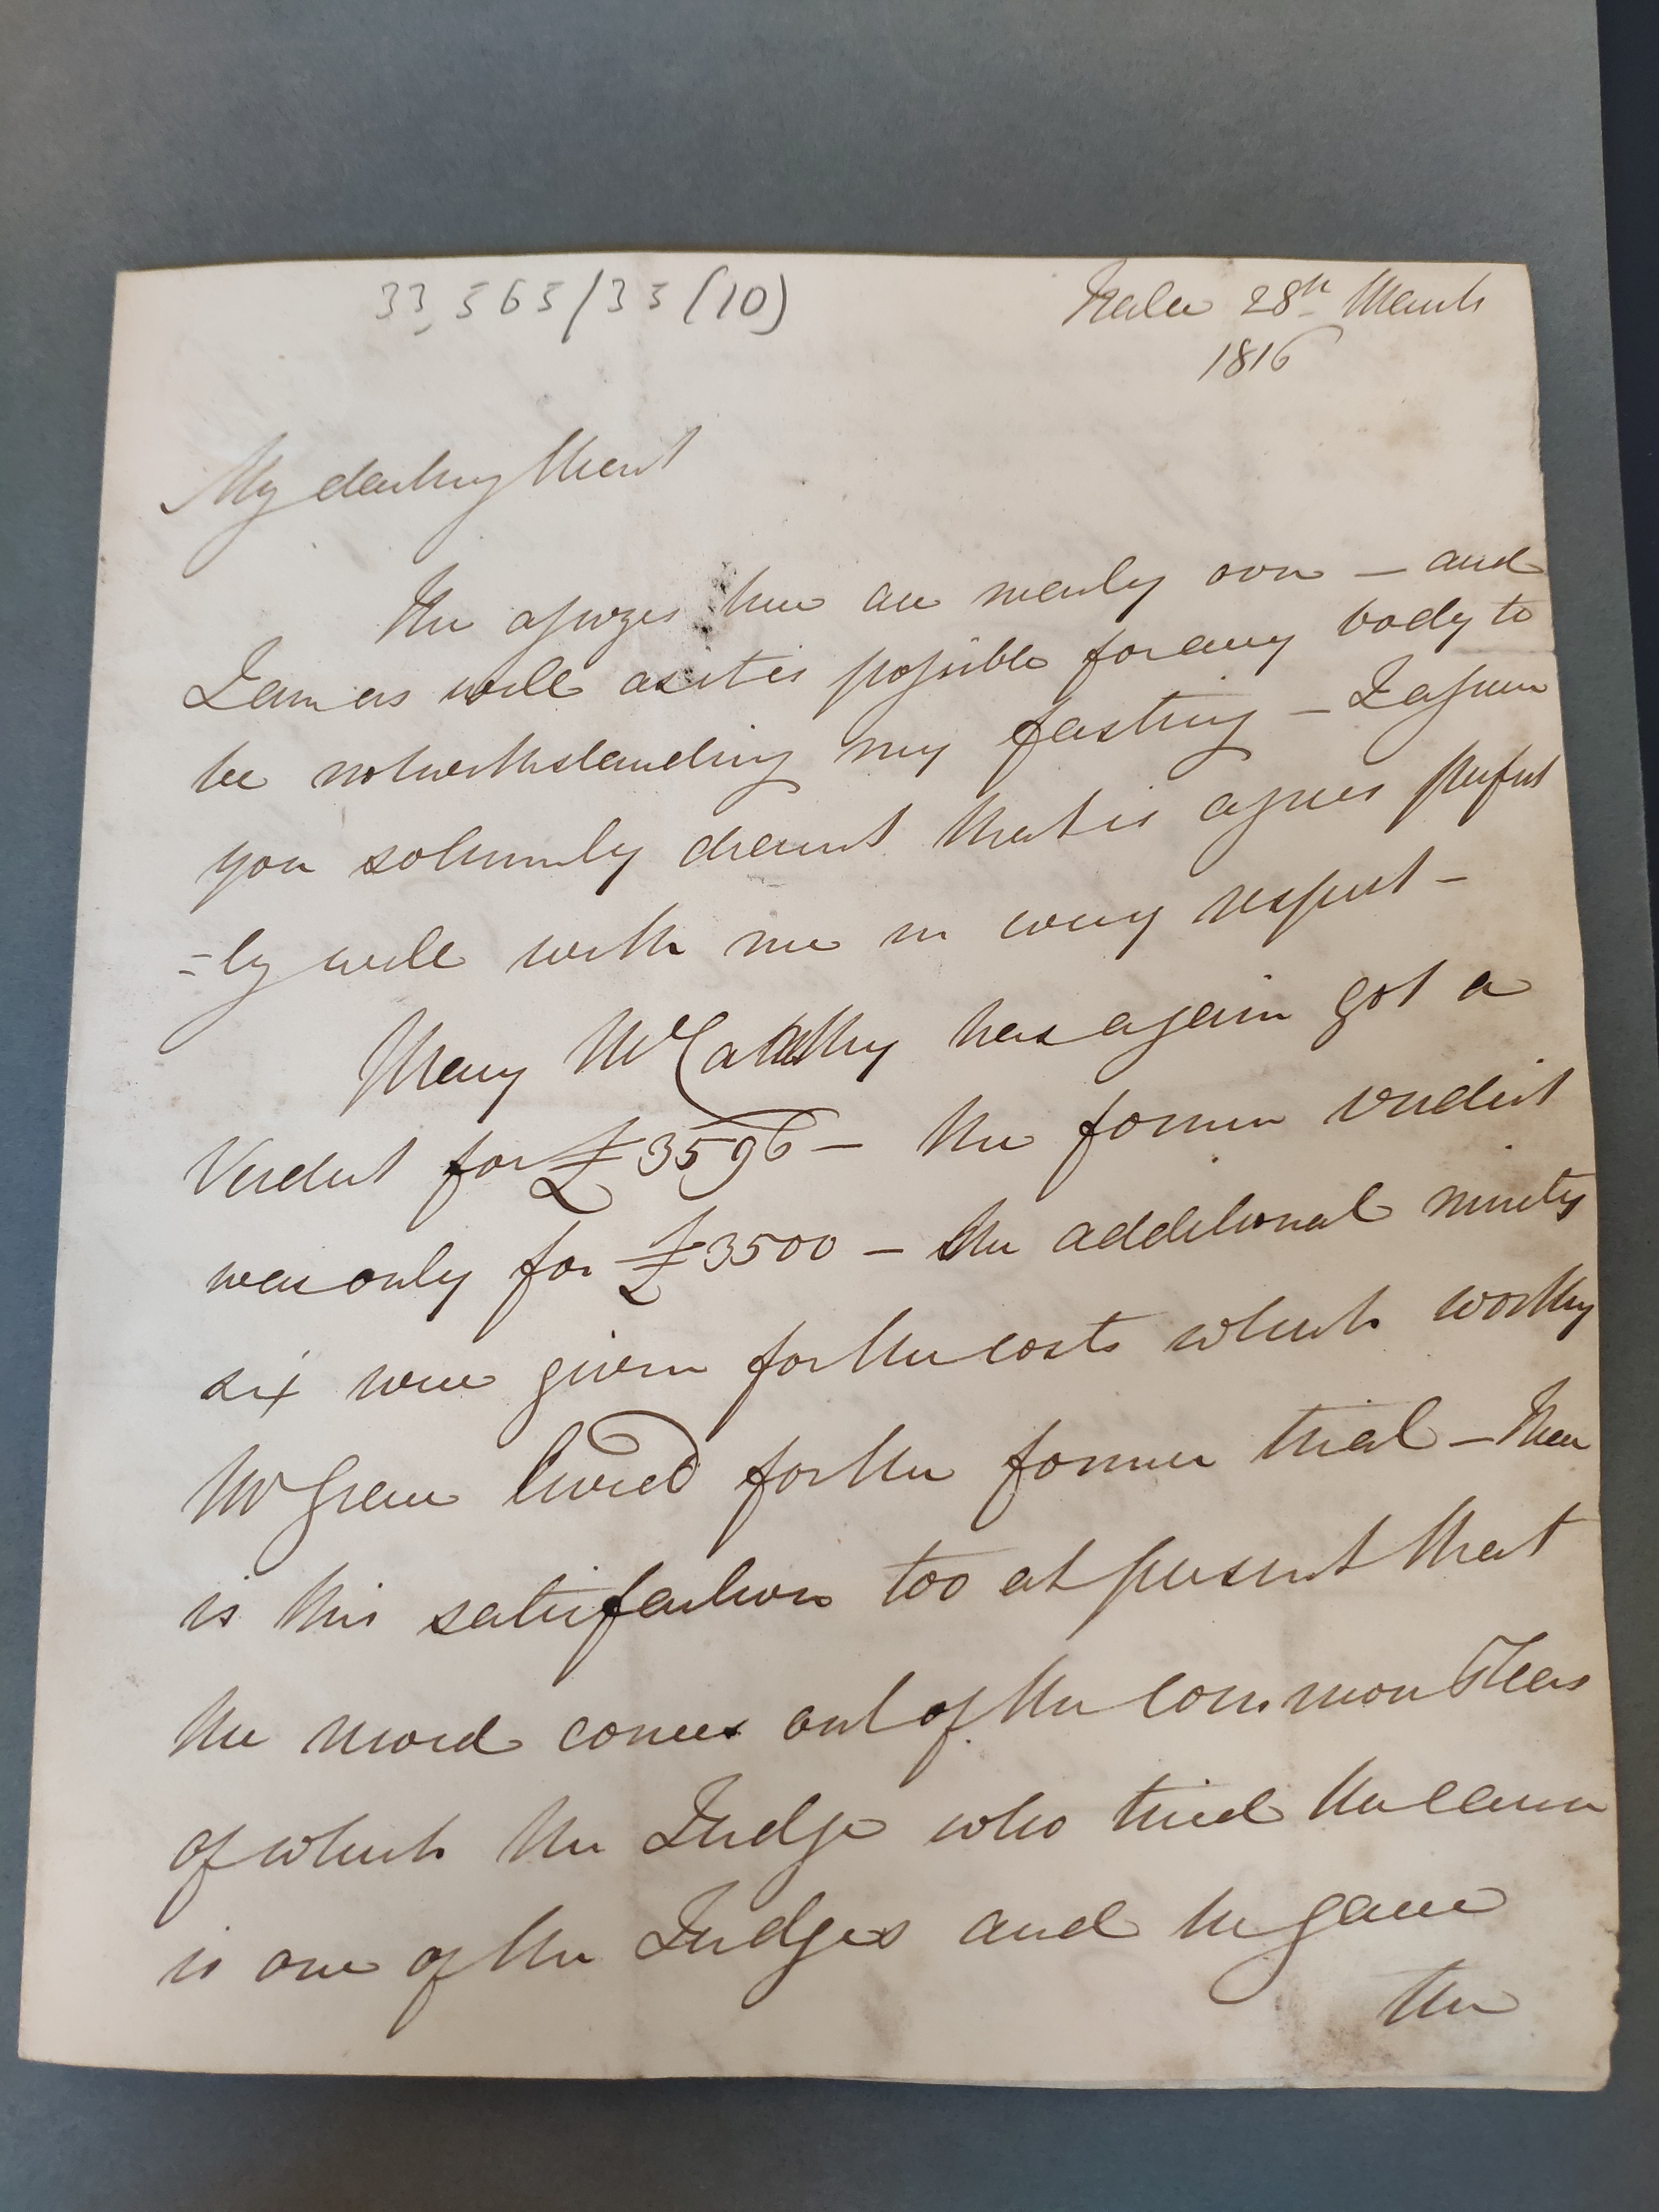 33,565/33(10)
Tralee 28th March
1816
My darling Heart
The assizes here are nearly over – and
I am as well as it is possible for any body to
be notwithstanding my fasting – I assure
you solemnly dearest that is agrees perfect
=ly well with me in every respect –
Mary McCarthy has again got a
Verdict for £3596 – the former verdict
was only for £3500 – the additional ninety
six were given for the costs which worthy
Mr for the former trial – There
is this satisfaction too at present that
the record comes out of the Common Pleas
of which the Judge who tried the cause
is one of the Judges and he gave
the